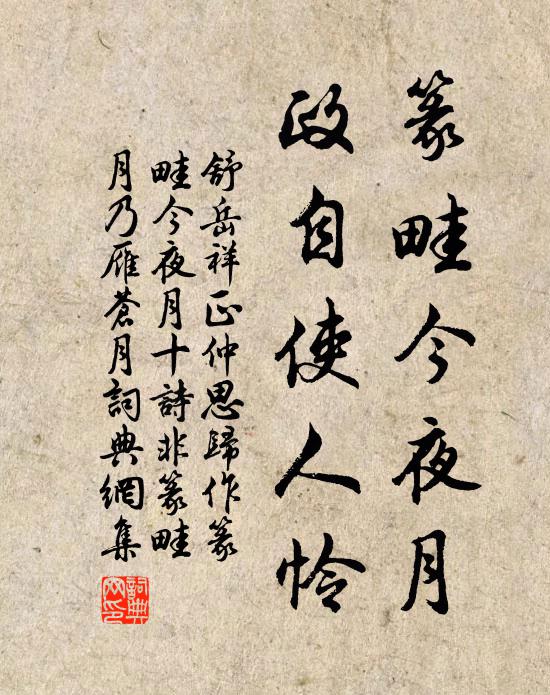 篆畦今夜月
政自使人怜
舒岳祥正仲思歸作篆
畦今夜月十詩非篆畦
月乃雁蒼月詞典網集
詞典
网印